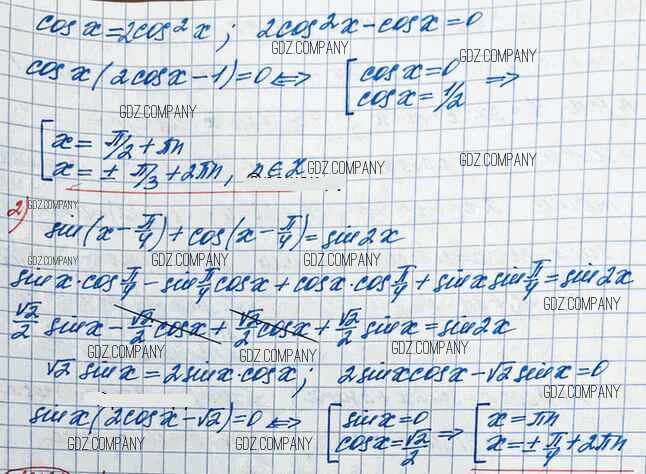 cos x = 2cos²x ; 2cos²x - cos x = 0
GDZ.COMPANY GDZ.COMPANY
cos x (2cos x - 1) = 0 <=> [ cos x = 0 cos x = 1/2 =>
GDZ.COMPANY
[ x = π/2 + πn
x = ± π/3 + 2πn, n ∈ Z GDZ.COMPANY GDZ.COMPANY
2) GDZ.COMPANY
sin(x - π/4) + cos(x - π/4) = sin 2x
GDZ.COMPANY GDZ.COMPANY GDZ.COMPANY
sin x · cos π/4 - sin π/4 cos x + cos x · cos π/4 + sin x sin π/4 = sin 2x
√2/2 sin x - √2/2 cos x + √2/2 cos x + √2/2 sin x = sin 2x
GDZ.COMPANY GDZ.COMPANY GDZ.COMPANY
√2 sin x = 2 sin x · cos x ; 2 sin x cos x - √2 sin x = 0
GDZ.COMPANY
sin x (2cos x - √2) = 0 <=> [ sin x = 0 cos x = √2/2 => [ x = πn x = ± π/4 + 2πn
GDZ.COMPANY GDZ.COMPANY GDZ.COMPANY